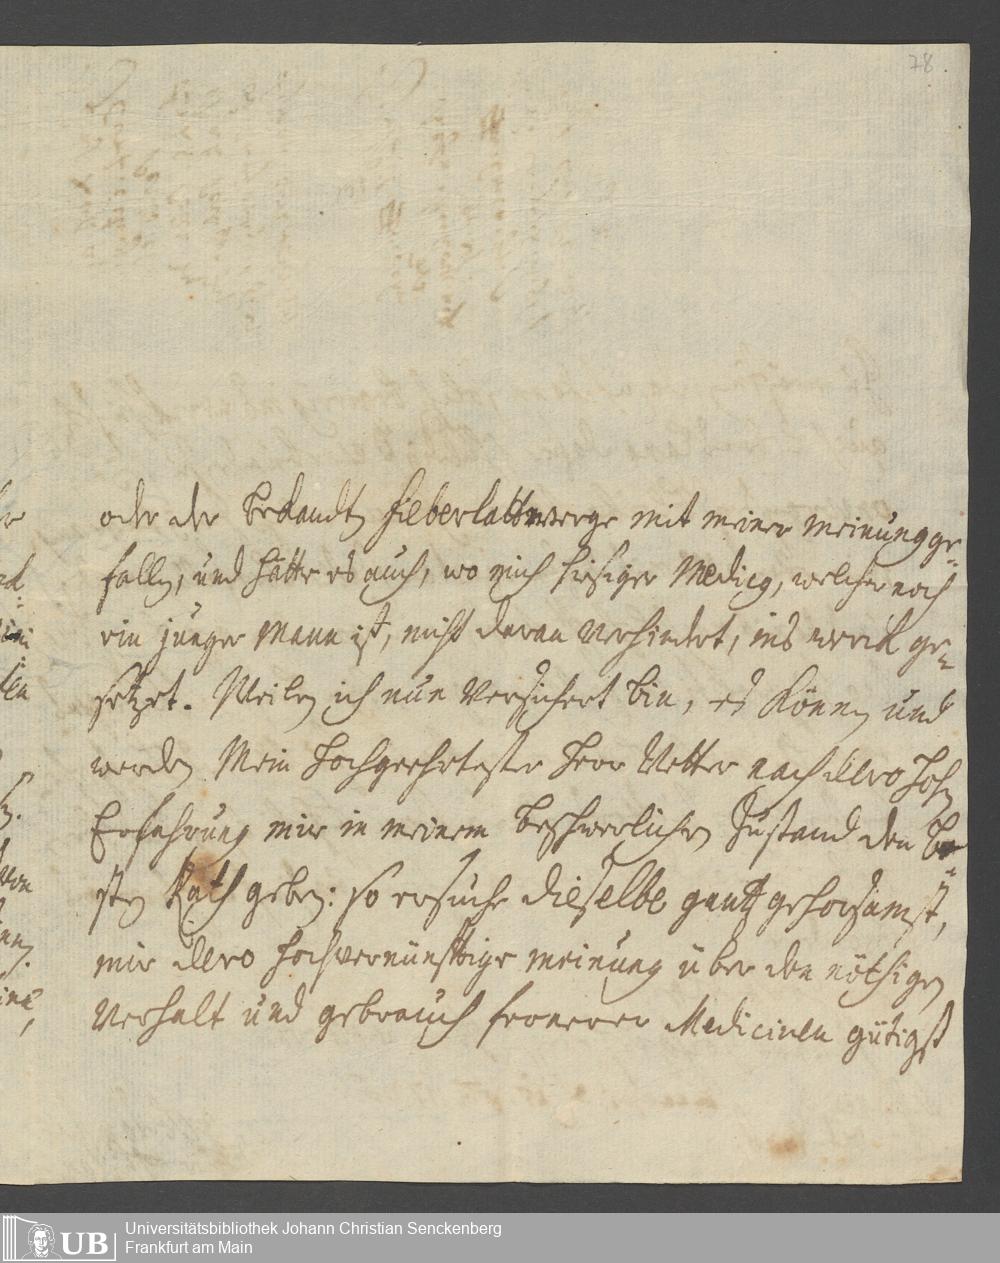 78.
oder der bekandten fieberlattwerge mit meiner meinung ge-
fallen, und hätte es auch, wo mich hiesiger Medicus, welcher noch
ein junger Mann ist, nicht daran verhindert, ins werck ge-
setzet. Weilen ich nun versichert bin, es können und
werden Mein hochgeehrtester Herr Vetter nach dero hohen
Erfahrung mir in meinem beschwerlichen Zustand den be-
sten Rath geben: so ersuche dieselbe gantz gehorsamst,
mir dero hochvernünfftige meinung über den nöthigen
Verhalt und gebrauch fernerer Medicinen gütigst
Universitätsbibliothek Johann Christian Senckenberg
Frankfurt am Main
UB